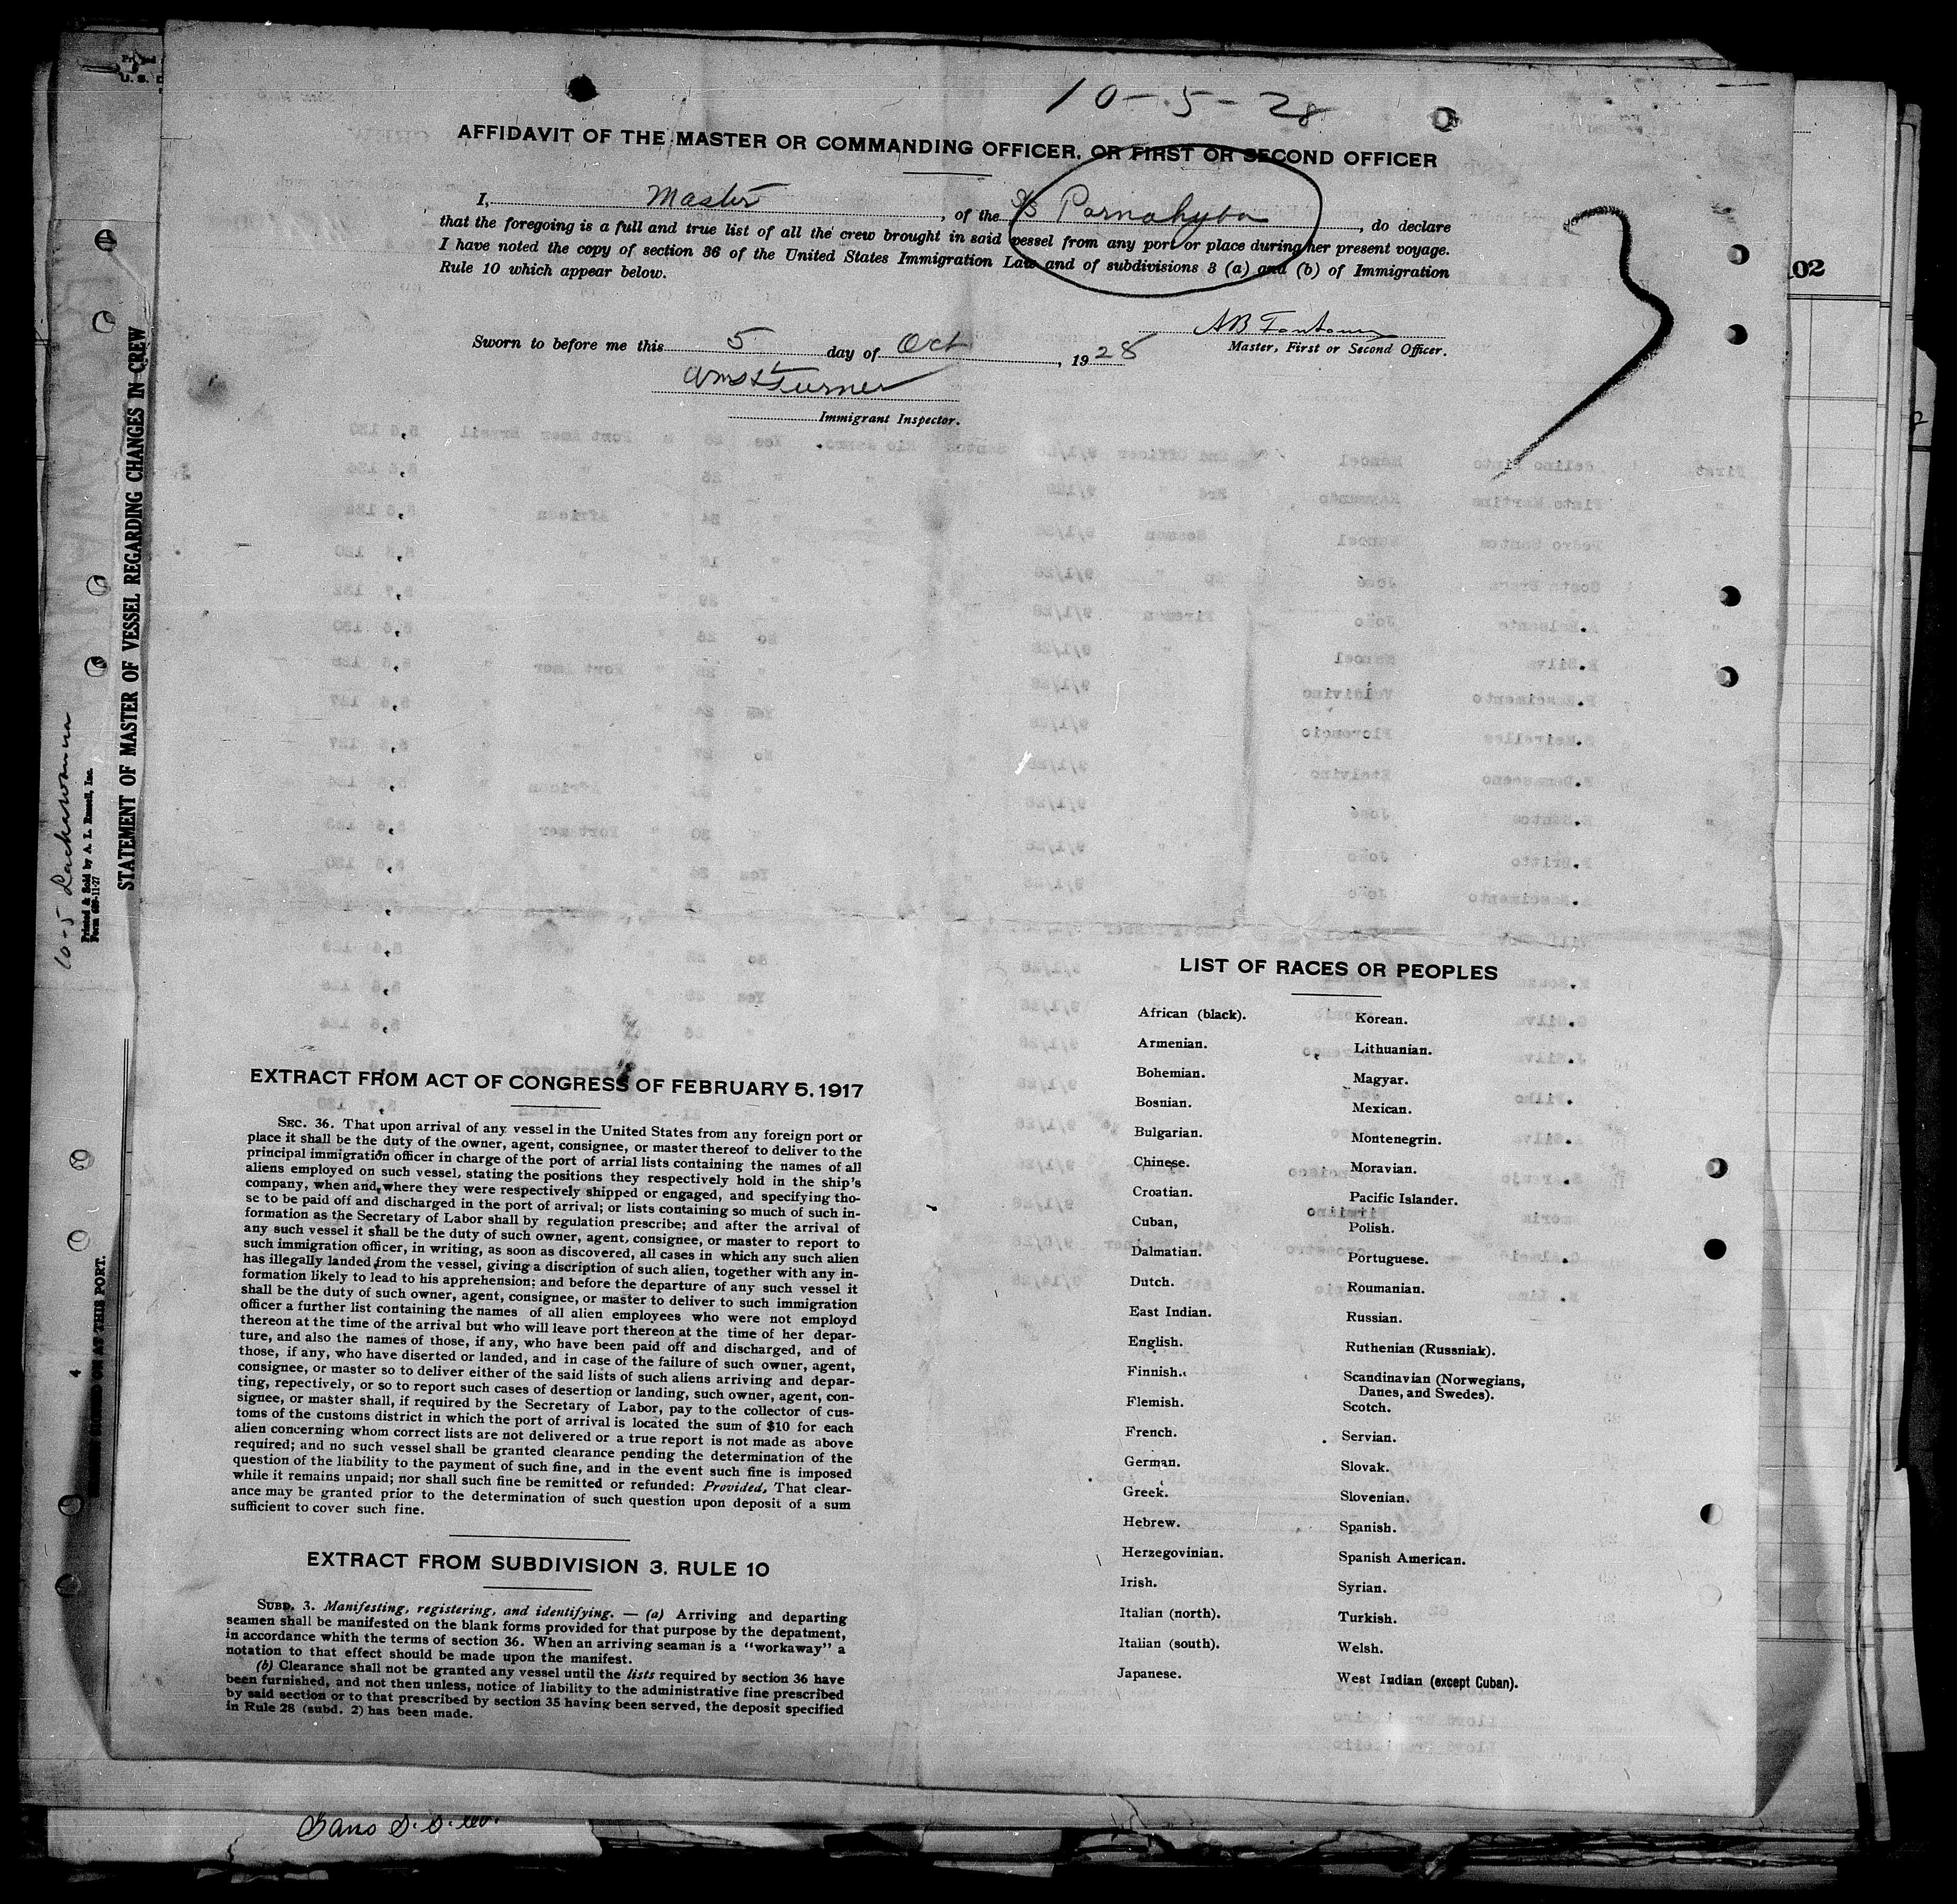 10-5-28
AFFIDAVIT OF THE MASTER OR COMMANDING OFFICER, OR FIRST OR SECOND OFFICER
I, Master, of the S/S Parnahyba, do declare
that the foregoing is a full and true list of all the crew brought in said vessel from any port or place during her present voyage.
I have noted the copy of section 36 of the United States Immigration Law and of subdivisions 3 (a) and (b) of Immigration
Rule 10 which appear below.
AB
Master, First or Second Officer.
Sworn to before me this 5 day of Oct, 1928
Turner
Immigrant Inspector.
STATEMENT OF MASTER OF VESSEL REGARDING CHANGES IN CREW
10-5 Lackawanna
Printed & Sold by A. L. Russell, Inc.
ON AT THIS PORT.
4
102
EXTRACT FROM ACT OF CONGRESS OF FEBRUARY 5, 1917
SEC. 36. That upon arrival of any vessel in the United States from any foreign port or
place it shall be the duty of the owner, agent, consignee, or master thereof to deliver to the
principal immigration officer in charge of the port of arrial lists containing the names of all
aliens employed on such vessel, stating the positions they respectively hold in the ship's
company, when and where they were respectively shipped or engaged, and specifying tho-
se to be paid off and discharged in the port of arrival; or lists containing so much of such in-
formation as the Secretary of Labor shall by regulation prescribe; and after the arrival of
any such vessel it shall be the duty of such owner, agent, consignee, or master to report to
such immigration officer, in writing, as soon as discovered, all cases in which any such alien
has illegally landed from the vessel, giving a discription of such alien, together with any in-
formation likely to lead to his apprehension; and before the departure of any such vessel it
shall be the duty of such owner, agent, consignee, or master to deliver to such immigration
officer a further list containing the names of all alien employees who were not employd
thereon at the time of the arrival but who will leave port thereon at the time of her depar-
ture, and also the names of those, if any, who have been paid off and discharged, and of
those, if any, who have diserted or landed, and in case of the failure of such owner, agent,
consignee, or master so to deliver either of the said lists of such aliens arriving and depar-
ting, repectively, or so to report such cases of desertion or landing, such owner, agent, con-
signee, or master shall, if required by the Secretary of Labor, pay to the collector of cus-
toms of the customs district in which the port of arrival is located the sum of $10 for each
alien concerning whom correct lists are not delivered or a true report is not made as above
required; and no such vessel shall be granted clearance pending the determination of the
question of the liability to the payment of such fine, and in the event such fine is imposed
while it remains unpaid; nor shall such fine be remitted or refunded: Provided, That clear-
ance may be granted prior to the determination of such question upon deposit of a sum
sufficient to cover such fine.
EXTRACT FROM SUBDIVISION 3, RULE 10
SUBD. 3. Manifesting, registering, and identifying. — (a) Arriving and departing
seamen shall be manifested on the blank forms provided for that purpose by the depatment,
in accordance whith the terms of section 36. When an arriving seaman is a "workaway" a
notation to that effect should be made upon the manifest.
(b) Clearance shall not be granted any vessel until the lists required by section 36 have
been furnished, and not then unless, notice of liability to the administrative fine prescribed
by said section or to that prescribed by section 35 having been served, the deposit specified
in Rule 28 (subd. 2) has been made.
LIST OF RACES OR PEOPLES
African (black).
Armenian.
Bohemian.
Bosnian.
Bulgarian.
Chinese.
Croatian.
Cuban,
Dalmatian.
Dutch.
East Indian.
English.
Finnish.
Flemish.
French.
German.
Greek.
Hebrew.
Herzegovinian.
Irish.
Italian (north).
Italian (south).
Japanese.
Korean.
Lithuanian.
Magyar.
Mexican.
Montenegrin.
Moravian.
Pacific Islander.
Polish.
Portuguese.
Roumanian.
Russian.
Ruthenian (Russniak).
Scandinavian (Norwegians,
Danes, and Swedes).
Scotch.
Servian.
Slovak.
Slovenian.
Spanish.
Spanish American.
Syrian.
Turkish.
Welsh.
West Indian (except Cuban).